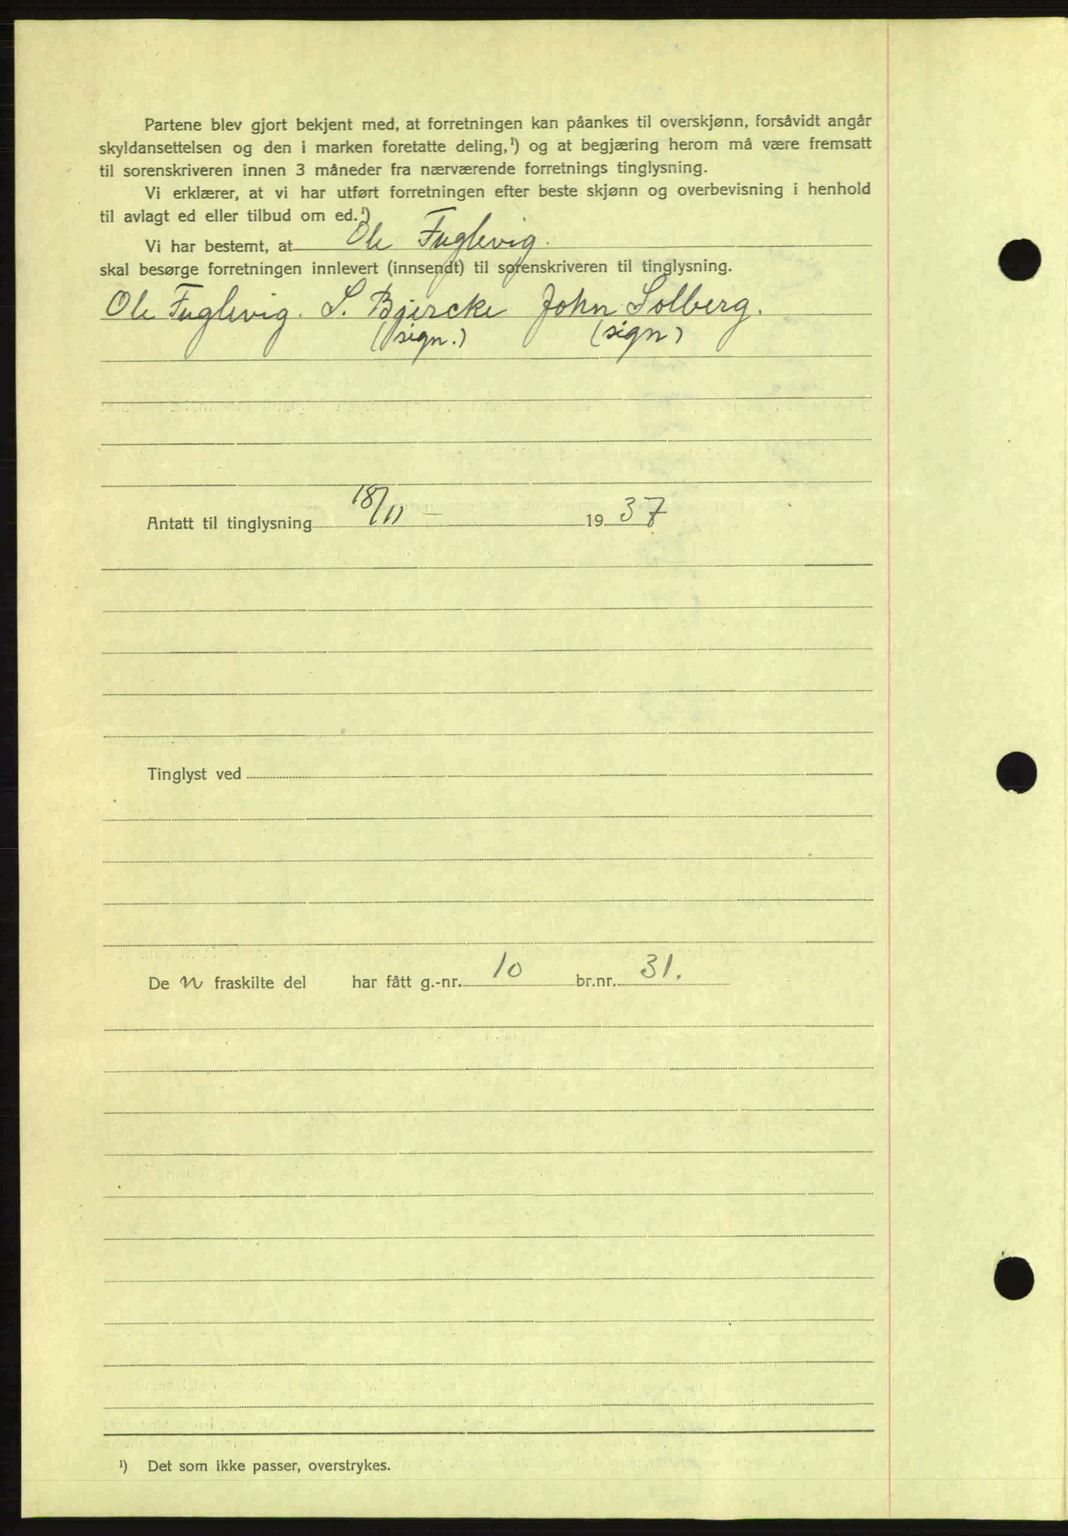 Partene blev gjort bekjent med, at forretningen kan påankes til overskjønn, forsåvidt angår
skyldansettelsen og den i marken foretatte deling,¹) og at begjæring herom må være fremsatt
til sorenskriveren innen 3 måneder fra nærværende forretnings tinglysning.
Vi erklærer, at vi har utført forretningen efter beste skjønn og overbevisning i henhold
til avlagt ed eller tilbud om ed.¹)
Vi har bestemt, at Ole Fuglevig.
skal besørge forretningen innlevert (innsendt) til sorenskriveren til tinglysning.
Ole Fuglevig. S. Bjercke John Solberg.
(sign.) (sign)
Antatt til tinglysning 18/11 – 1937
Tinglyst ved
De n fraskilte del har fått g.-nr. 10 br.nr. 31.
¹) Det som ikke passer, overstrykes.